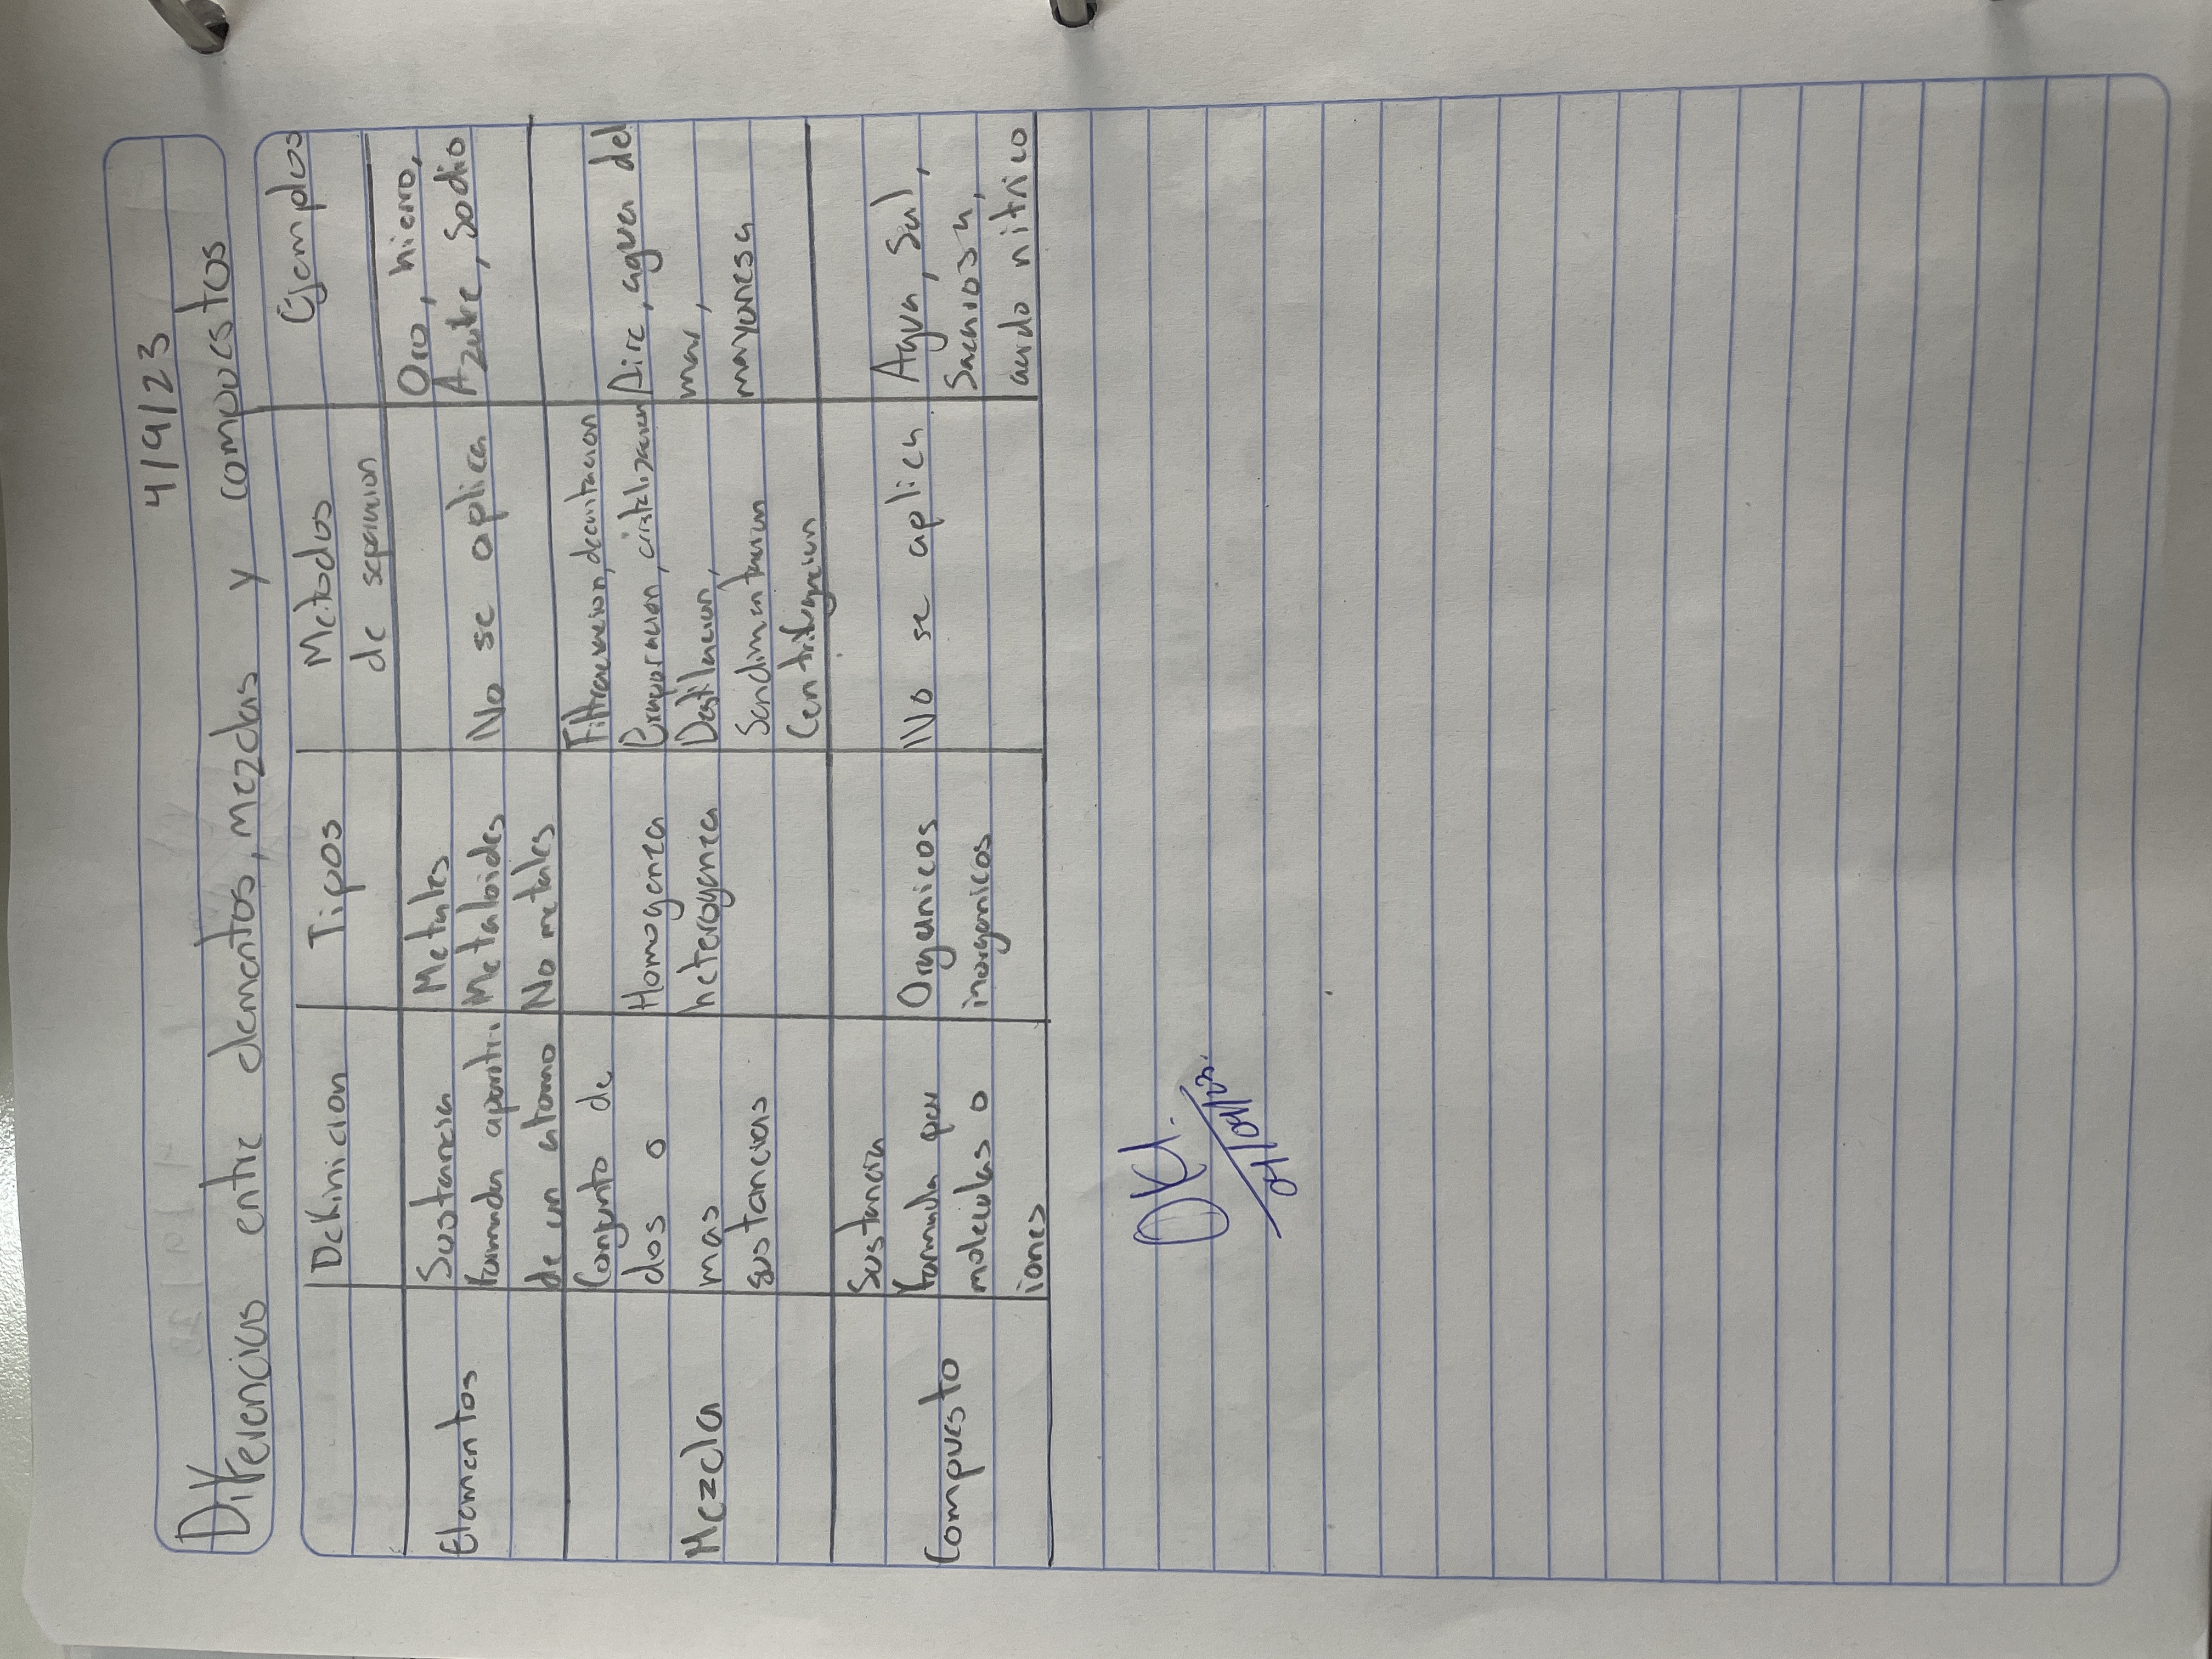 4/9/23
Diferencias entre elementos, mezclas y compuestos
Definicion Tipos Metodos de separacion Ejemplos
Elementos
Sustancia
formada aparti
de un atomo
Metales
Metaloides
No metales
No se aplica
Oro, hierro,
Azufre, Sodio
Mezcla
Conjunto de
dos o
mas
sustancias
Homogenea
heterogenea
Filtracion, decantacion
Evaporacion, cristalizacion
Destilacion,
Sendimentacion
Centrifugacion
Aire, agua del
mar,
mayonesa
Compuesto
Sustancia
formada por
moleculas o
iones
Organicos
inorganicos
No se aplica
Agua, Sal,
Sacarosa,
acido nitrico
OK!